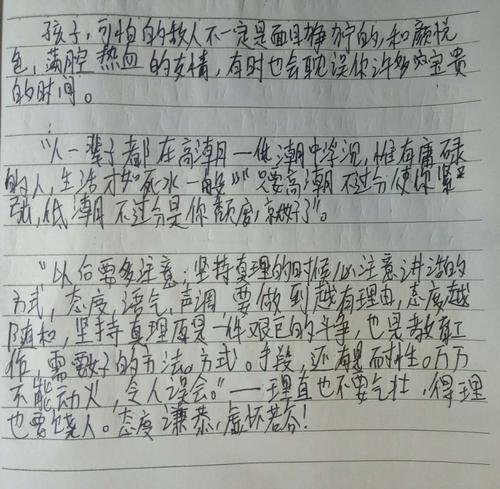 孩子,可怕的敌人不一定是面目狰狞的,和颜悦
色,满腔热血的友情,有时也会耽误你许多宝贵
的时间。
“人一辈子都在高潮一低潮中浮沉,惟有庸碌
的人,生活才如死水一般”“只要高潮不过分使你紧
张,低潮不过分是你颓废,就好了”。
“以后要多注意:坚持真理的时候必注意讲话的
方式,态度,语气,声调 要做到越有理由,态度越
随和,坚持真理原是一件艰巨的斗争,也是教育工
作,需要好的方法。方式。手段,还有是耐性。万万
不能动火,令人误会。”—理直也不要气壮,得理
也要饶人。态度谦恭,虚怀若谷!